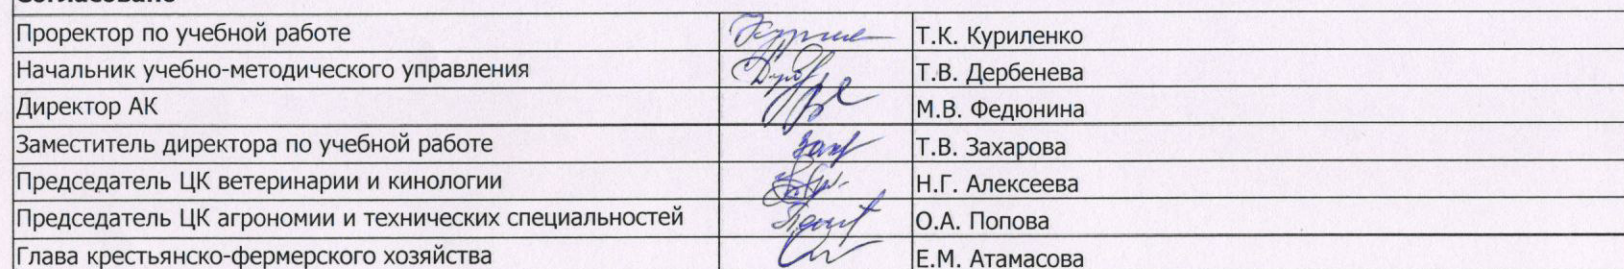 Согласовано
Проректор по учебной работе Т.К. Куриленко
Начальник учебно-методического управления Т.В. Дербенева
Директор АК М.В. Федюнина
Заместитель директора по учебной работе Т.В. Захарова
Председатель ЦК ветеринарии и кинологии Н.Г. Алексеева
Председатель ЦК агрономии и технических специальностей О.А. Попова
Глава крестьянско-фермерского хозяйства Е.М. Атамасова